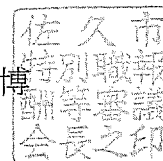 佐久市
特別職報
酬等審議
会長之印
博